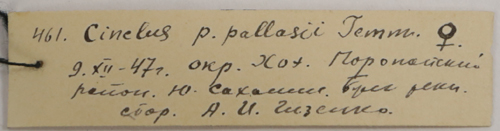 461. Cinclus p. pallasii Temm. ♀.
9.XII-47г. окр. Хот. Поронайский
район. Ю. Сахалин. Брег реки.
сбор. А. И. Гизенко.